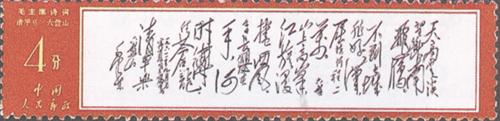 毛主席诗词
清平乐·六盘山
4分
中国
人民邮政
天高云淡
望断南
飞雁
不到长城
非好漢
屈指行程二
万
六盘
山上高峰
红旗漫
卷西风
手何
时缚住
苍龙
清平乐